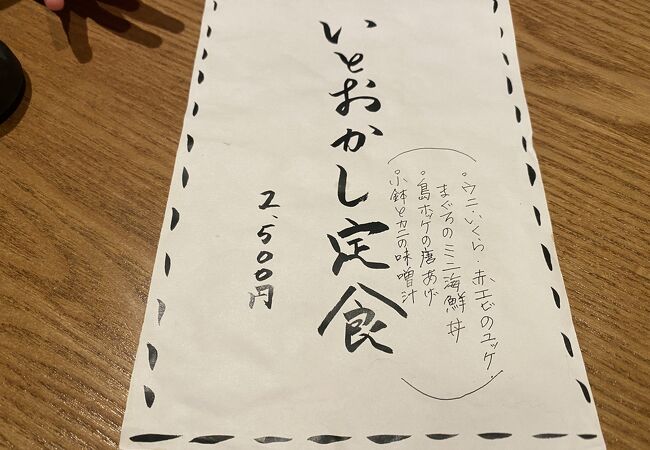 いとおかし定食
。ウニ・いくら・赤エビのユッケ、
まぐろのミニ海鮮丼
。島ホッケの唐あげ
。小鉢とカニの味噌汁
2,500円